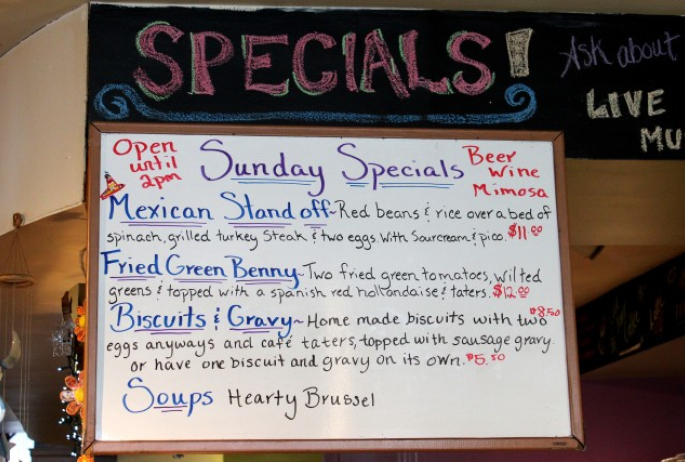 SPECIALS!
Ask about
LIVE
MU
Open
until
2pm
Sunday Specials
Beer
Wine
Mimosa
Mexican Standoff~Red beans & rice over a bed of
spinach, grilled turkey steak & two eggs. With Sourcream & pico. $11.00
Fried Green Benny~Two fried green tomatoes, wilted
greens & topped with a spanish red hollandaise & taters. $12.00
Biscuits & Gravy~ Home made biscuits with two $8.50
eggs anyways and café taters, topped with sausage gravy.
or have one biscuit and gravy on its own. $5.50
Soups Hearty Brussel